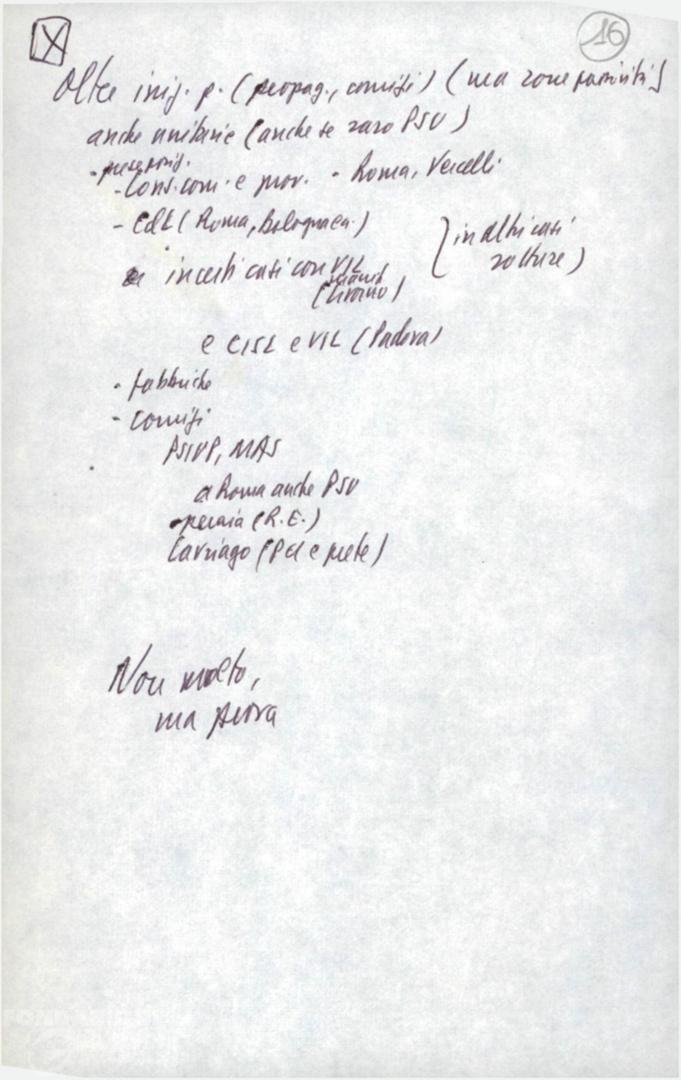 X
16
Oltre iniz. p. (propag., comizi) (ma zone passività)
anche unitarie (anche se raro PSU)
- prese posiz.
- Cons. com. e prov. - Roma, Vercelli
- CdL (Roma, Bologna ecc.)
in altri casi
rotture)
in certi casi con UIL
(Livorno)
e CISL e UIL (Padova)
- fabbriche
- Comizi
PSIUP, MAS
a Roma anche PSU
operaia (R.E.)
Cavriago (PCI e prete)
Non molto,
ma prova